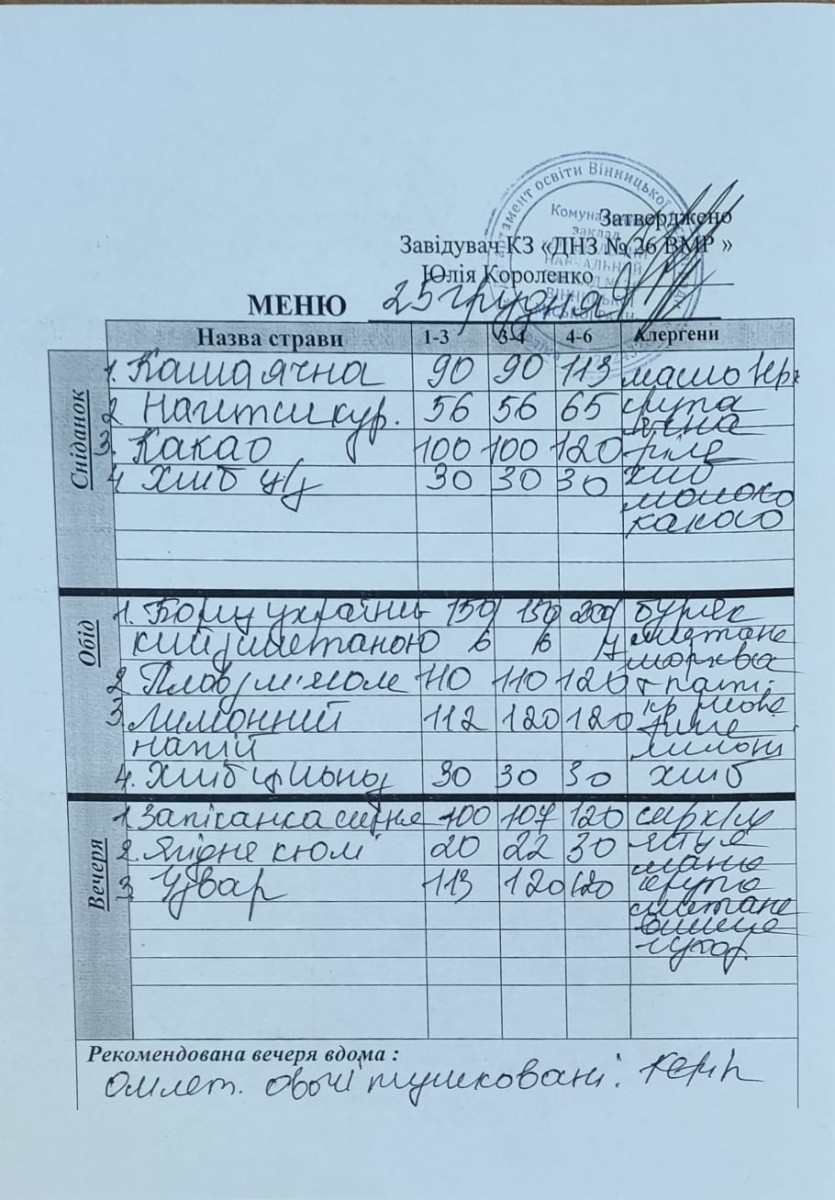 департамент освіти Вінницької
Комунальний
заклад
Затверджено
Завідувач КЗ «ДНЗ № 26 ВМР »
Юлія Короленко
МЕНЮ 25 грудня
Назва страви 1-3 3-4 4-6 Алергени
Сніданок
1. Каша ячна 90 90 113 масло
2 Нагітси кур. 56 56 65 крупа
3. Какао 100 100 120 філе
4. Хліб ц/з 30 30 30 хліб
молоко
какао
Обід
1. Борщ україн- 150/ 150/ 200/ буряк
ський зі сметаною 6 6 7 сметана
морква
2. Плов з м'ясом 110 110 120
3. Лимонний 112 120 120
напій лимон
4. Хліб цільноз 30 30 30 хліб
Вечеря
1 Запіканка сирна 100 107 120 сир к/м
2. Ягідне кюлі 20 22 30 яйця
масло
3. Узвар 113 120 120 крупа
сметана
цукор.
Рекомендована вечеря вдома :
Омлет. овочі тушковані.